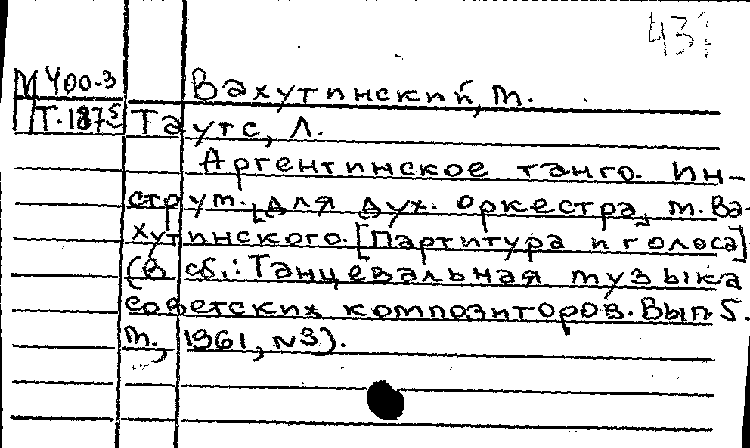 43
М 400-3
Т-1875
Вахутинский, М.
Таутс, Л.
Аргентинское танго. Ин-
струм. [для дух. оркестра] М. Ва-
хутинского. [Партитура и голоса]
(в сб.: Танцевальная музыка
советских композиторов. Вып 5.
М., 1961, №3).